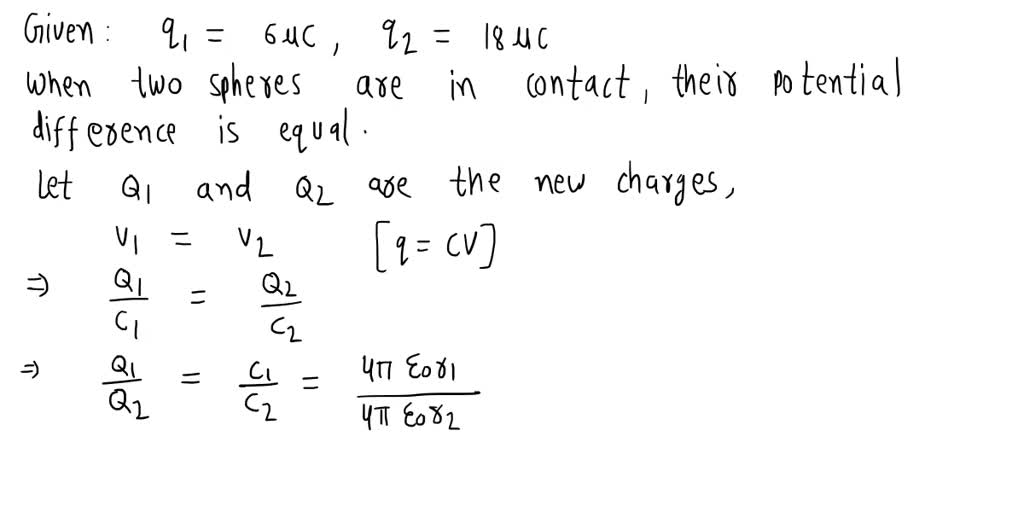 Given: q1 = 6 μC, q2 = 18 μC
When two spheres are in contact, their potential
difference is equal.
Let Q1 and Q2 are the new charges,
V1 = V2 [q = CV]
⇒ Q1/C1 = Q2/C2
⇒ Q1/Q2 = C1/C2 = 4π ε0 r1 / 4π ε0 r2